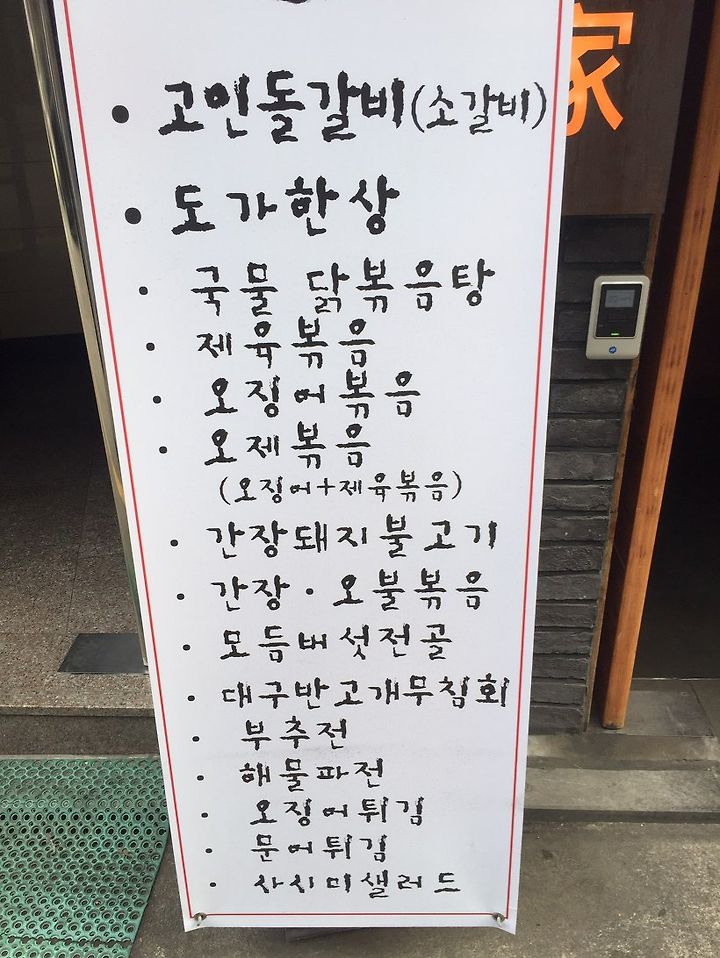 家
• 고인돌갈비(소갈비)
• 도가한상
• 국물 닭볶음탕
• 제육볶음
• 오징어볶음
• 오제볶음
(오징어+제육볶음)
• 간장돼지불고기
• 간장·오불볶음
• 모듬버섯전골
• 대구반고개무침회
• 부추전
• 해물파전
• 오징어튀김
• 문어튀김
• 사시미샐러드